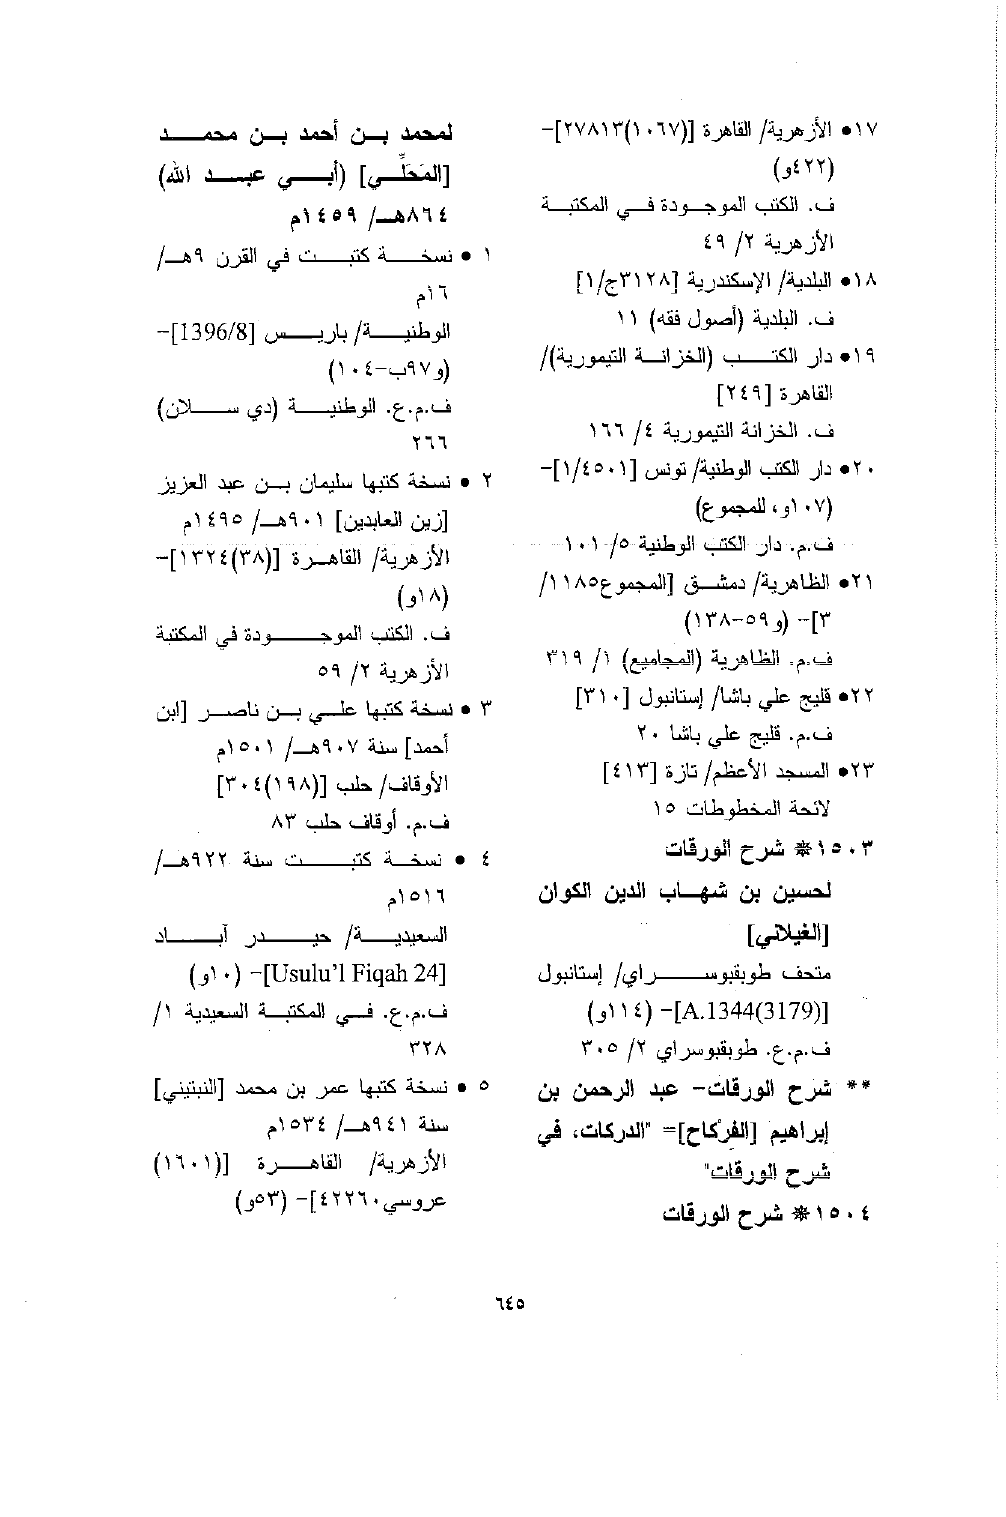 ١٧• الأزهرية/ القاهرة [(١٠٦٧)٢٧٨١٣]-
(٤٢٢و)
ف. الكتب الموجودة في المكتبة
الأزهرية ٢/ ٤٩
١٨• البلدية/ الإسكندرية [٣١٢٨ج/١]
ف. البلدية (أصول فقه) ١١
١٩• دار الكتب (الخزانة التيمورية)/
القاهرة [٢٤٩]
ف. الخزانة التيمورية ٤/ ١٦٦
٢٠• دار الكتب الوطنية/ تونس [١/٤٥٠١]-
(١٠٧و، للمجموع)
ف.م. دار الكتب الوطنية ٥/ ١٠١
٢١• الظاهرية/ دمشق [المجموع١١٨٥/
٣]- (و٥٩-١٣٨)
ف.م. الظاهرية (المجاميع) ١/ ٣١٩
٢٢• قليج علي باشا/ إستانبول [٣١٠]
ف.م. قليج علي باشا ٢٠
٢٣• المسجد الأعظم/ تازة [٤١٣]
لائحة المخطوطات ١٥
١٥٠٣* شرح الورقات
لحسين بن شهاب الدين الكوان
[الغيلاني]
متحف طوبقبوسراي/ إستانبول
[A.1344(3179)]- (١١٤و)
ف.م.ع. طوبقبوسراي ٢/ ٣٠٥
** شرح الورقات- عبد الرحمن بن
إبراهيم [الفِرْكاح]= "الدركات، في
شرح الورقات"
١٥٠٤* شرح الورقات
لمحمد بن أحمد بن محمد
[المَحَلِّي] (أبي عبد الله)
٨٦٤هـ/ ١٤٥٩م
١ • نسخة كتبت في القرن ٩هـ/
١٦م
الوطنية/ باريس [1396/8]-
(و٩٧ب-١٠٤)
ف.م.ع. الوطنية (دي سلان)
٢٦٦
٢ • نسخة كتبها سليمان بن عبد العزيز
[زين العابدين] ٩٠١هـ/ ١٤٩٥م
الأزهرية/ القاهرة [(٣٨)١٣٢٤]-
(١٨و)
ف. الكتب الموجودة في المكتبة
الأزهرية ٢/ ٥٩
٣ • نسخة كتبها علي بن ناصر [ابن
أحمد] سنة ٩٠٧هـ/ ١٥٠١م
الأوقاف/ حلب [(١٩٨)٣٠٤]
ف.م. أوقاف حلب ٨٣
٤ • نسخة كتبت سنة ٩٢٢هـ/
١٥١٦م
السعيدية/ حيدر آباد
[Usulu'l Fiqah 24]- (١٠و)
ف.م.ع. في المكتبة السعيدية ١/
٣٢٨
٥ • نسخة كتبها عمر بن محمد [النبتيني]
سنة ٩٤١هـ/ ١٥٣٤م
الأزهرية/ القاهرة [(١٦٠١)
عروسي٤٢٢٦٠]- (٥٣و)
٦٤٥